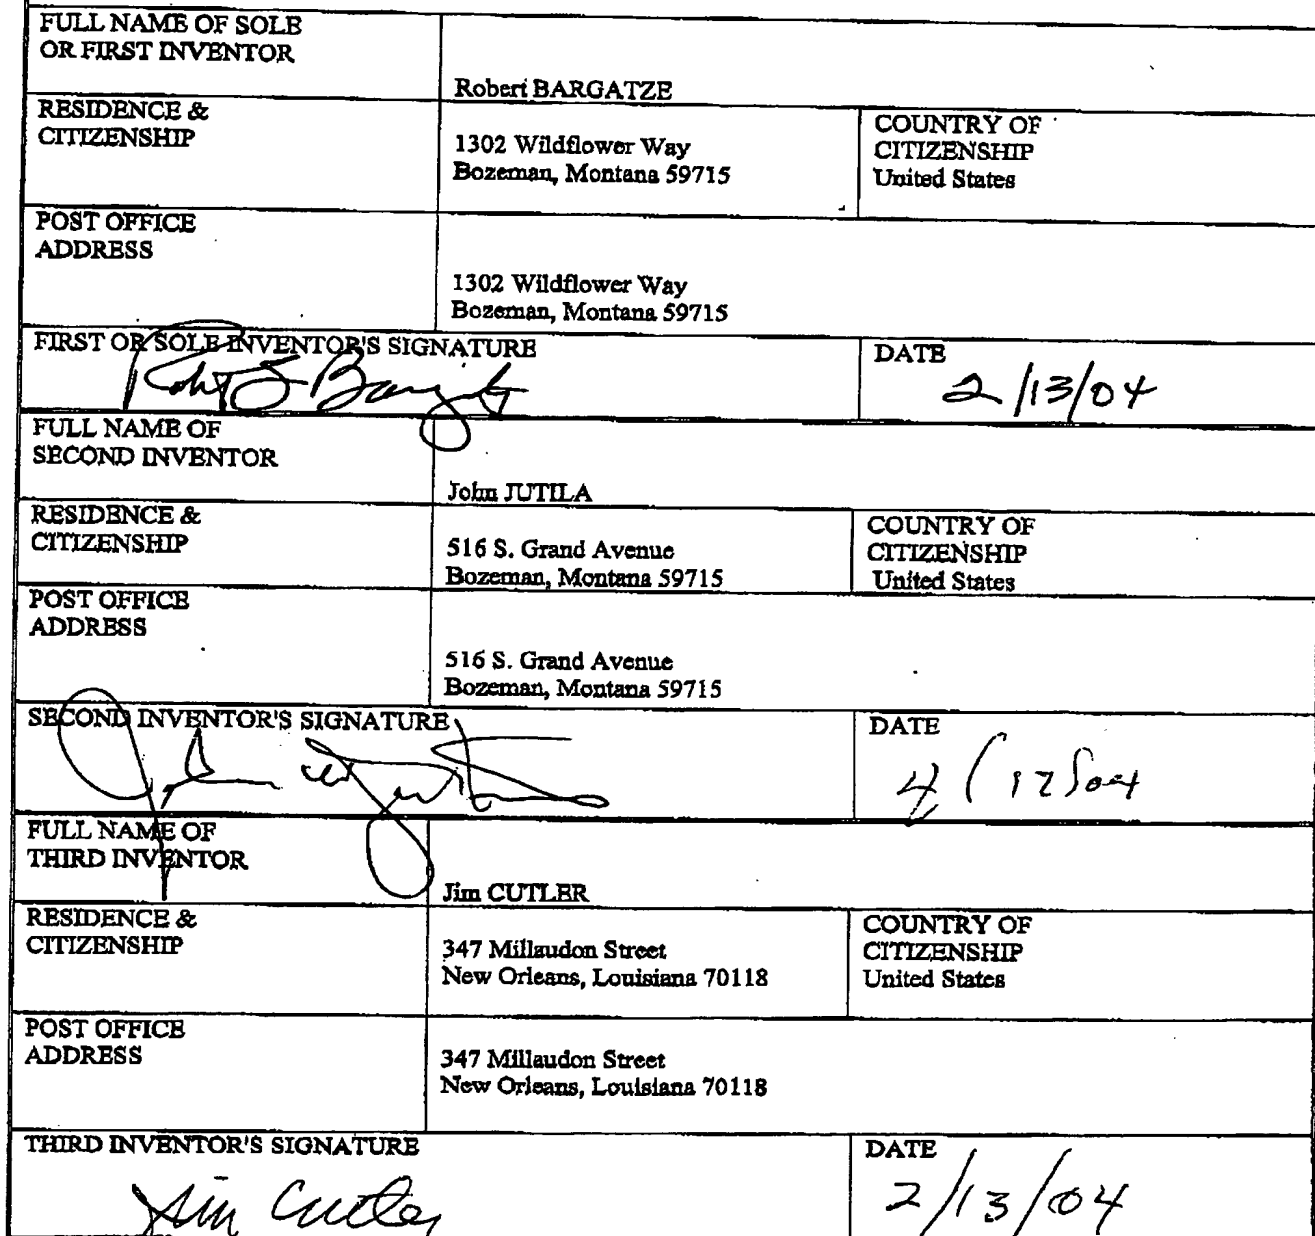 FULL NAME OF SOLE
OR FIRST INVENTOR
Robert BARGATZE
RESIDENCE &
CITIZENSHIP
1302 Wildflower Way
Bozeman, Montana 59715
COUNTRY OF
CITIZENSHIP
United States
POST OFFICE
ADDRESS
1302 Wildflower Way
Bozeman, Montana 59715
FIRST OR SOLE INVENTOR'S SIGNATURE
DATE
2/13/04
FULL NAME OF
SECOND INVENTOR
John JUTILA
RESIDENCE &
CITIZENSHIP
516 S. Grand Avenue
Bozeman, Montana 59715
COUNTRY OF
CITIZENSHIP
United States
POST OFFICE
ADDRESS
516 S. Grand Avenue
Bozeman, Montana 59715
SECOND INVENTOR'S SIGNATURE
DATE
FULL NAME OF
THIRD INVENTOR
Jim CUTLER
RESIDENCE &
CITIZENSHIP
347 Millaudon Street
New Orleans, Louisiana 70118
COUNTRY OF
CITIZENSHIP
United States
POST OFFICE
ADDRESS
347 Millaudon Street
New Orleans, Louisiana 70118
THIRD INVENTOR'S SIGNATURE
Jim Cutler
DATE
2/13/04